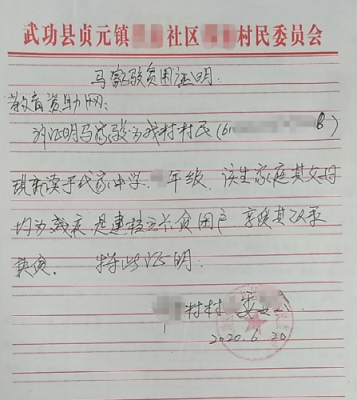 武功县贞元镇 社区 村民委员会
马家骏贫困证明.
教育资助网:
兹证明马家骏为我村村民(6 8)
现就读于代家中学, 年级. 该生家庭其父母
均为残疾,是建档立卡贫困户,享受
特此证明.
村村委
2020.6.20